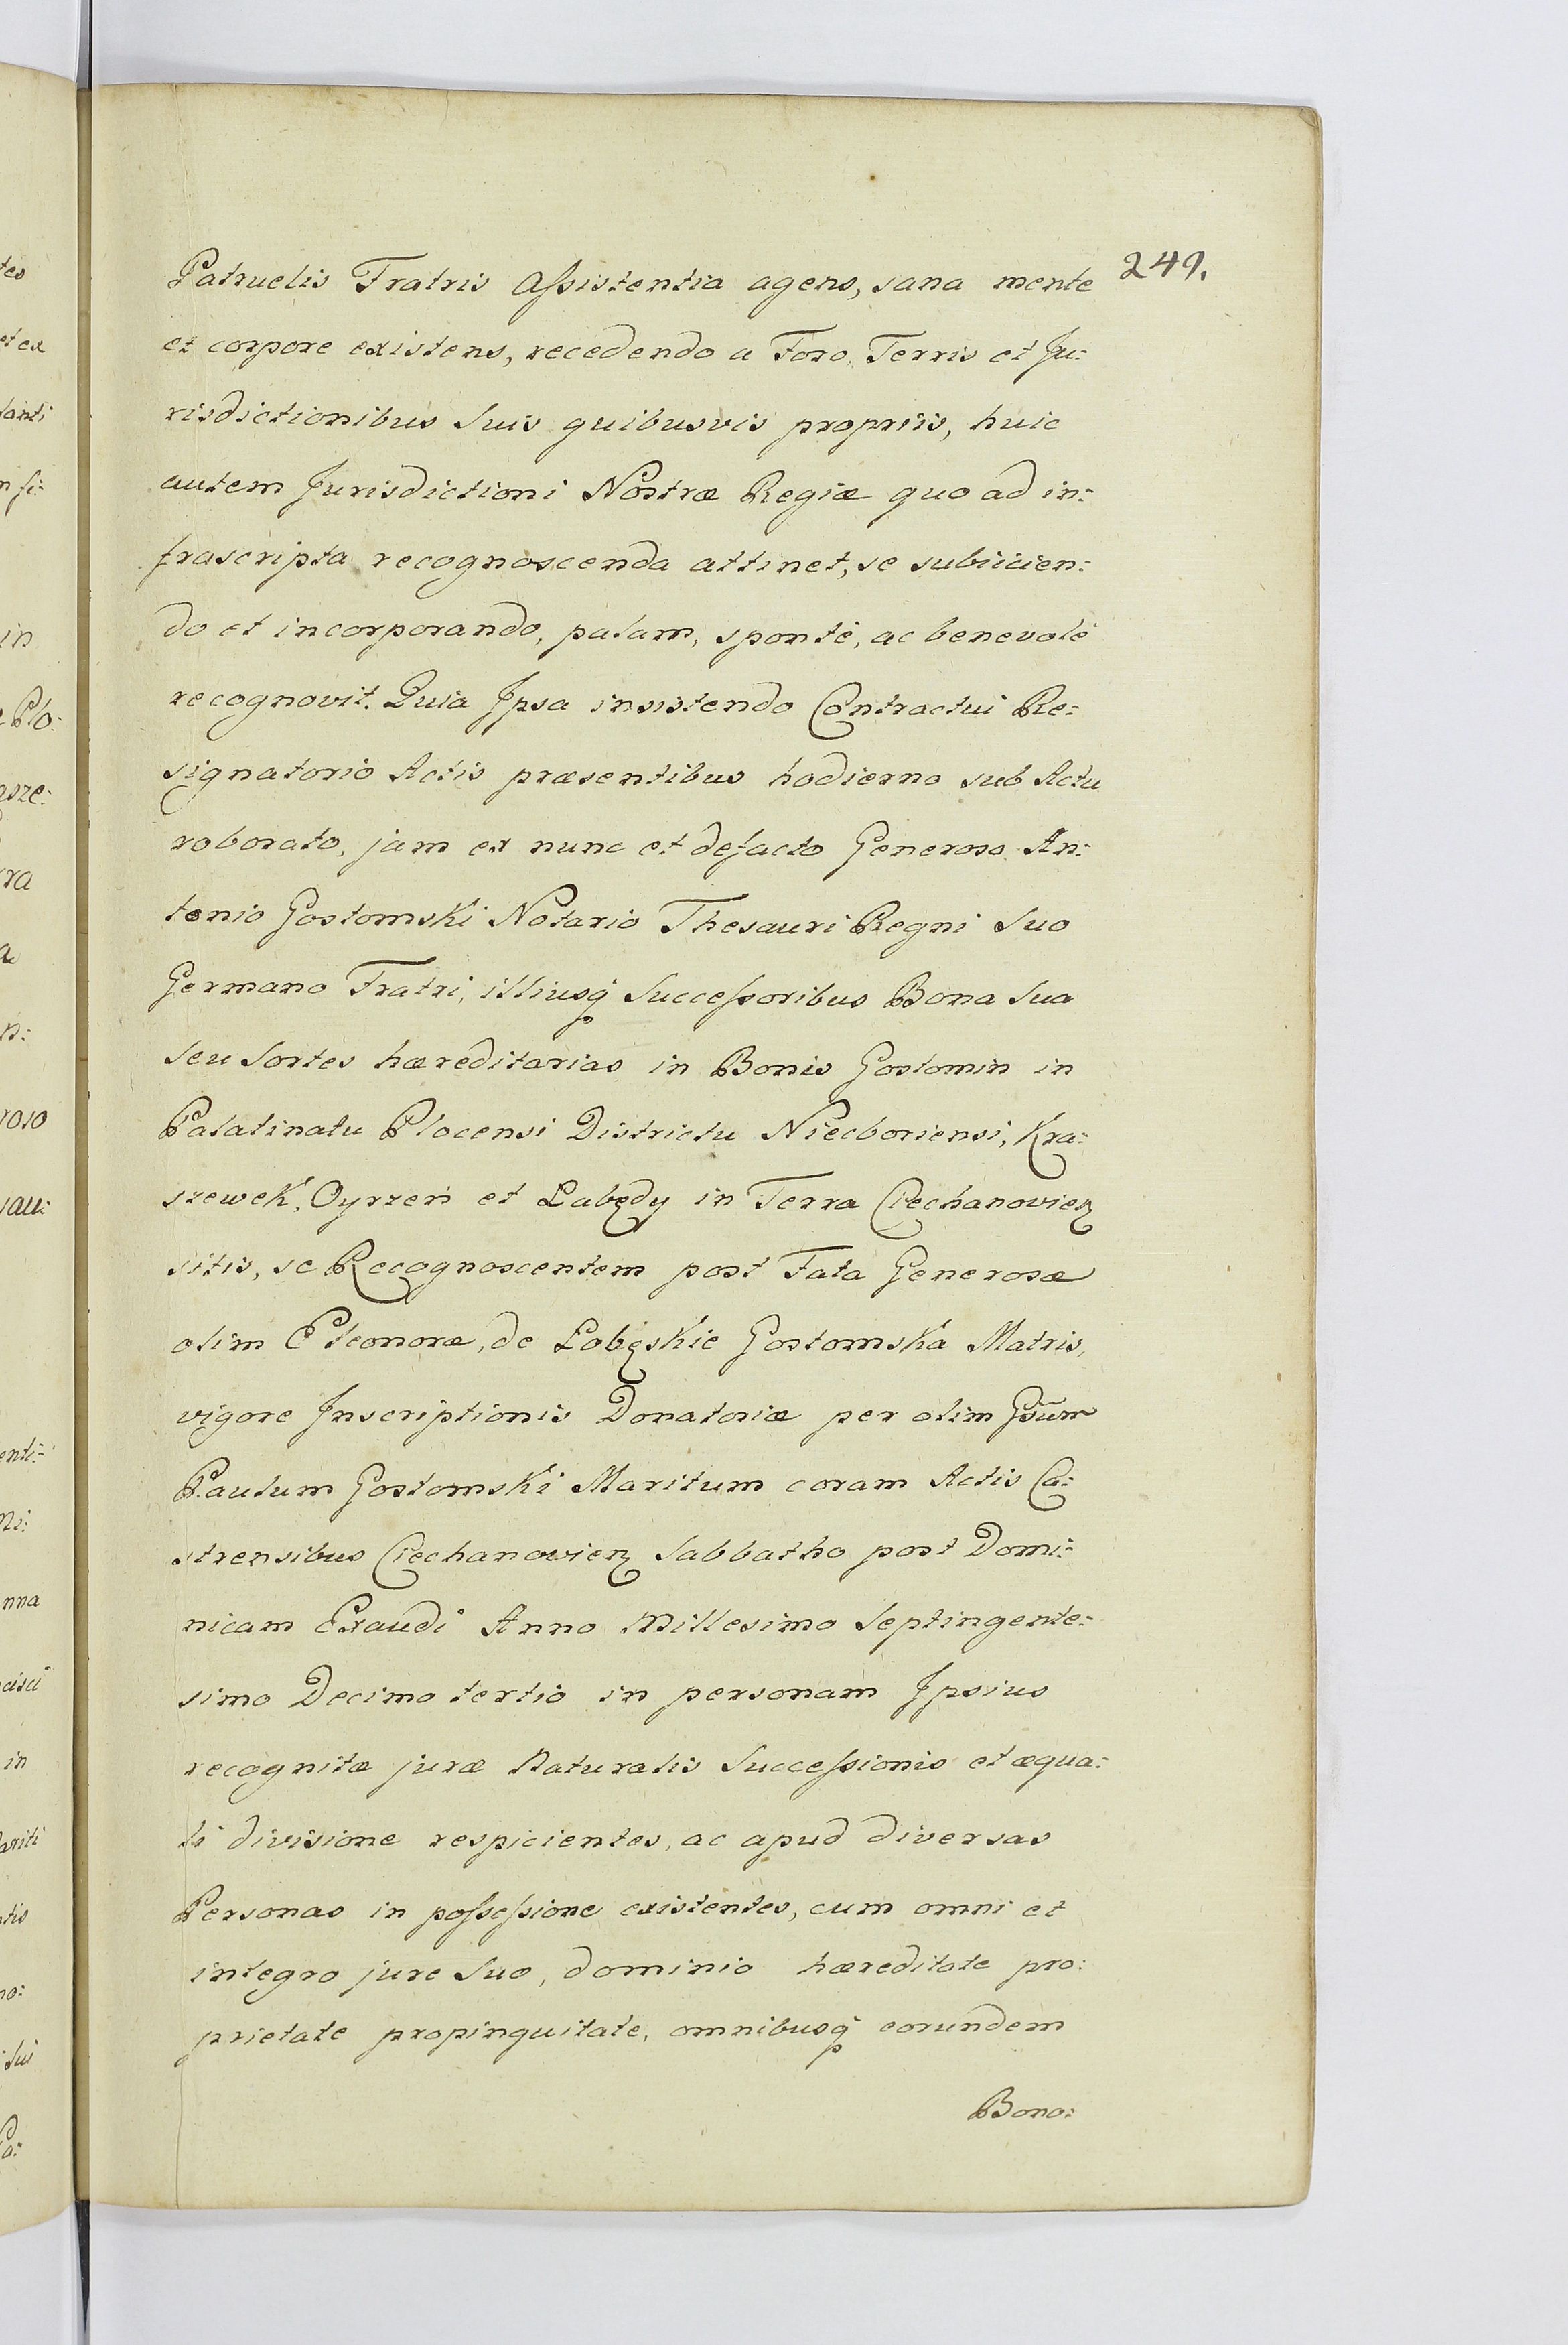 249.
Patruelis Fratris Assistentia agens, sana mente
et corpore existens, recedendo a Foro Terris et Ju:
risdictionibus Suis quibusvis propriis, huic
autem Jurisdictioni Nostræ Regiæ quo ad in:
frascripta recognoscenda attinet, se subiicien:
do et incorporando, palam, sponte, ac benevole
recognovit. Quia Ipsa insistendo Contractui Re:
signatorio Actis præsentibus hodierno sub Actu
roborato, jam ex nunc et defacto Generoso An:
tonio Gostomski Notario Thesauri Regni Suo
Germano Fratri, illiusq̃ Successoribus Bona Sua
Seu Sortes hæreditarias in Bonis Gostomin in
Palatinatu Plocensi Districtu Niecboriensi, Kra:
szewek, Oyrzeń et Łabędy in Terra Ciechanovien
sitis, se Recognoscentem post Fata Generosæ
olim Eleonoræ, de Łobęskie Gostomska Matris,
vigore Inscriptionis Donatoriæ per olim Gsũm
Paulum Gostomski Maritum coram Actis Ca:
strensibus Ciechanovien Sabbatho post Domi:
nicam Exaudi Anno Millesimo Septingente:
simo Decimo tertio in personam Ipsius
recognitæ juræ Naturalis Successionis et æqua:
li divisione respicientes, ac apud diversas
Personas in possessione existentes, cum omni et
integro jure Suo, dominio hæreditate pro:
prietate propinquitate, omnibusq̃ eorundem
Bono:
tes
et ex
tanti
n si:
in
Plo:
asze:
ra
n:
roso
sau:
enti:
ni:
nna
in
ariti
ntis
no:
Sui